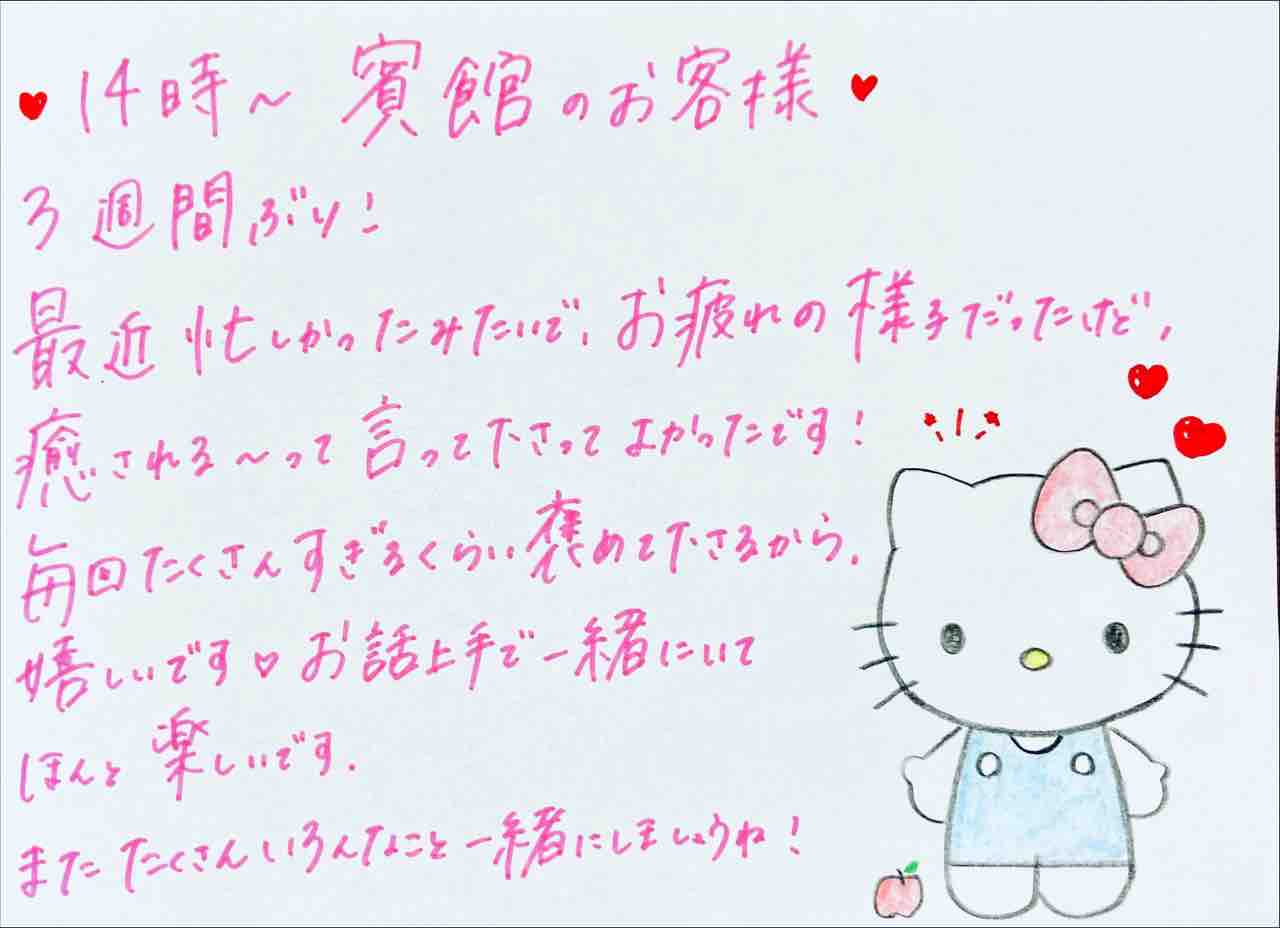 ♥14時～ 賓館のお客様♥
3週間ぶり!
最近忙しかったみたいで、お疲れの様子だったけど、
癒される～って言って下さってよかったです!
毎回たくさんすぎるくらい褒めて下さるから、
嬉しいです♡お話上手で一緒にいて
ほんと楽しいです.
またたくさんいろんなこと一緒にしましょうね!